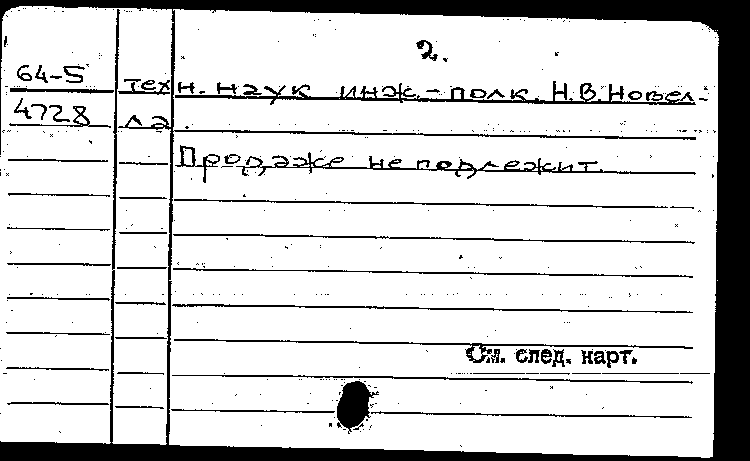 2.
64-5 техн. наук инж-полк. Н.В. Новел-
4728 ла.
Продаже не подлежит.
См. след. карт.